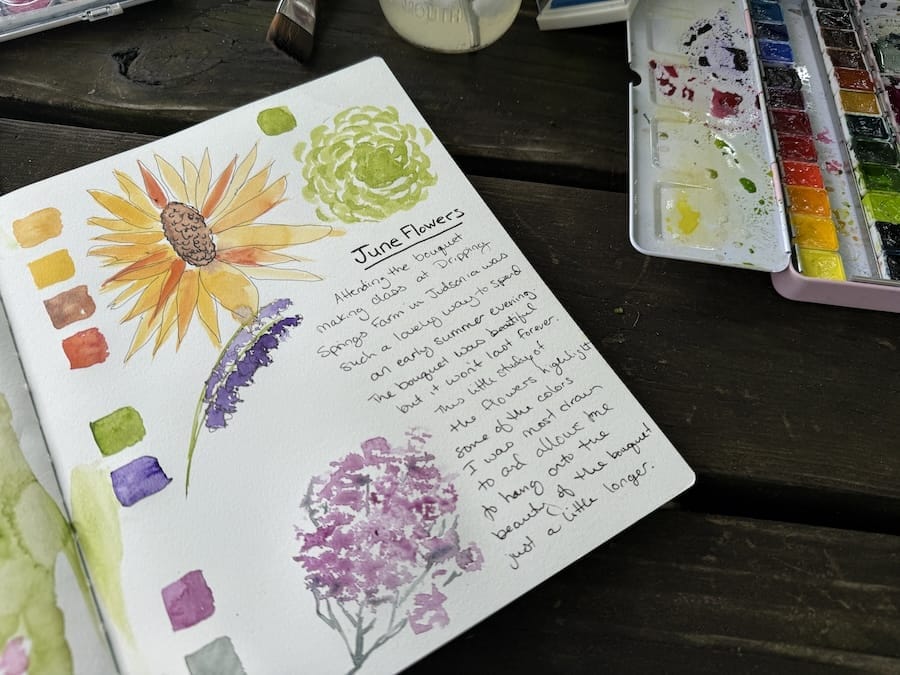 June Flowers
Attending the bouquet
making class at Dripping
Springs Farm in Judsonia was
such a lovely way to spend
an early summer evening.
The bouquet was beautiful
but it won't last forever.
This little study of
the flowers highlight
some of the colors
I was most drawn
to and allows me
to hang onto the
beauty of the bouquet
just a little longer.